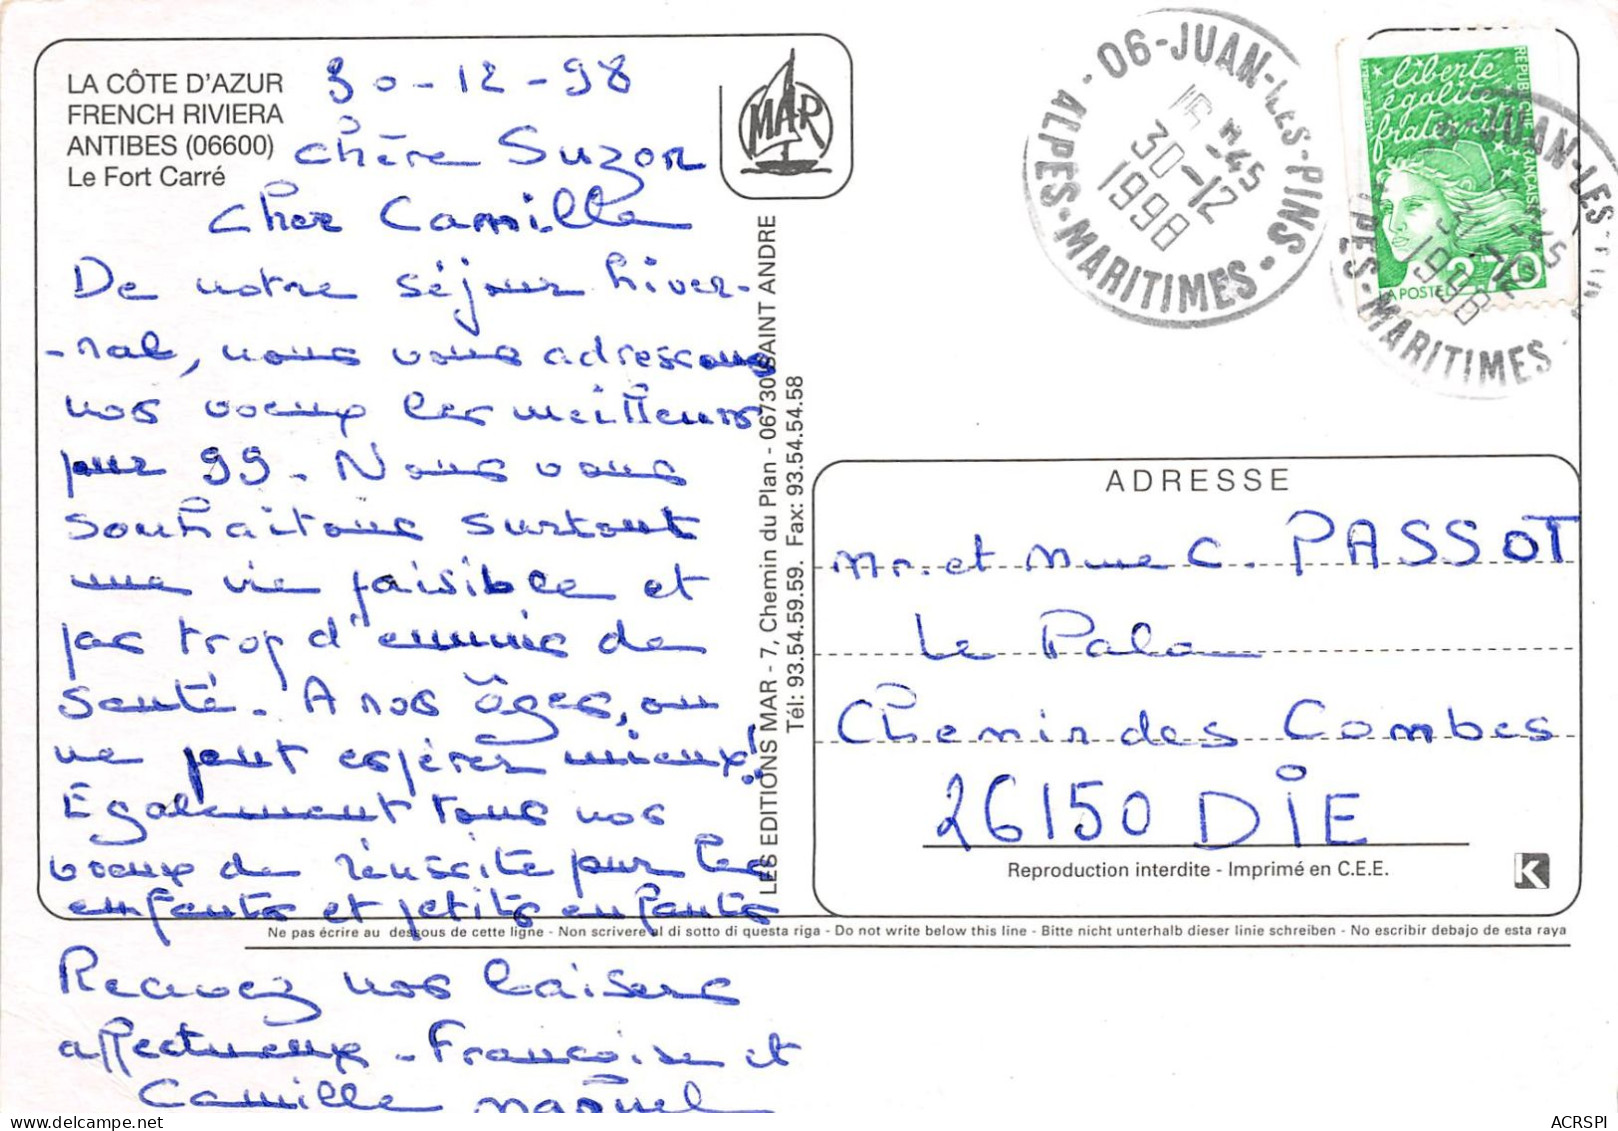 LA CÔTE D'AZUR
FRENCH RIVIERA
ANTIBES (06600)
Le Fort Carré
30-12-98
Chère Suzon
Cher Camille
De notre séjour hiver-
-nal, nous vous adressons
nos voeux les meilleurs
pour 99. Nous vous
souhaitons surtout
une vie paisible et
pas trop d'ennuis de
santé. A nos âges, on
ne peut espérer mieux!
Egalement tous nos
voeux de réussite pour les
enfants et petits enfants
Recevez nos baisers
affectueux - Françoise et
Camille
MAR
LES EDITIONS MAR - 7, Chemin du Plan - 06730 SAINT ANDRE
Tél: 93.54.59.59. Fax: 93.54.54.58
06-JUAN-LES-PINS
16 H 45
30-12
1998
ALPES-MARITIMES
liberté
égalité
fraternité
RÉPUBLIQUE FRANÇAISE
LA POSTE
2,70
JUAN-LES-PINS
1998
ALPES-MARITIMES
ADRESSE
Mr. et Mme C. PASSOT
Le Palou
Chemin des Combes
26150 DIE
Reproduction interdite - Imprimé en C.E.E.
K
Ne pas écrire au dessous de cette ligne - Non scrivere al di sotto di questa riga - Do not write below this line - Bitte nicht unterhalb dieser linie schreiben - No escribir debajo de esta raya
ACRSPI